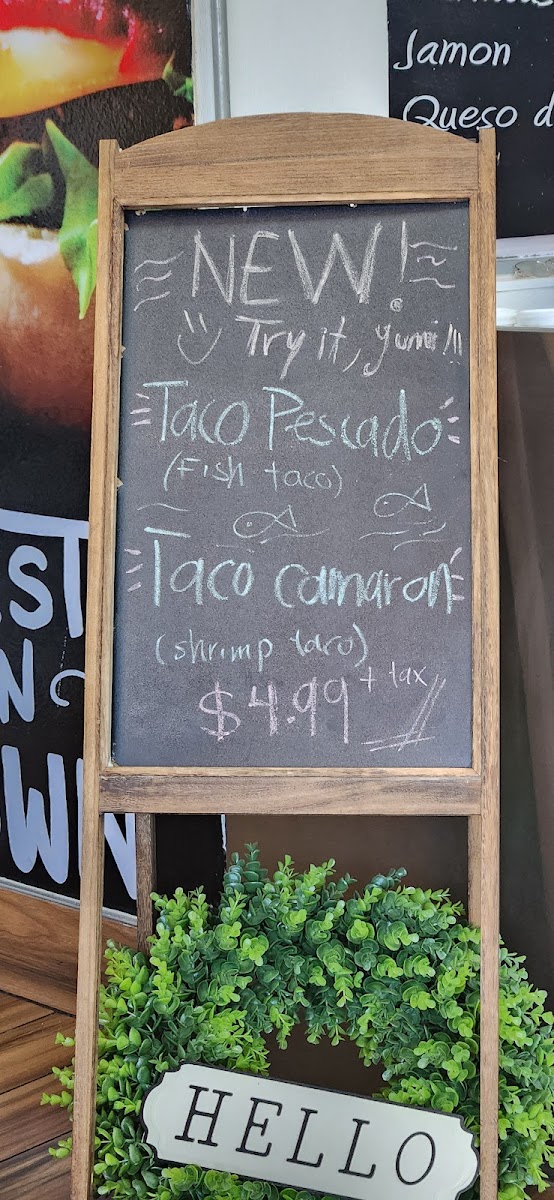 Jamon
Queso d
NEW!
Try it, yumi!!!
Taco Pescado
(Fish taco)
Taco camaron
(shrimp taco)
$4.99 + tax
ST
N
OWN
HELLO